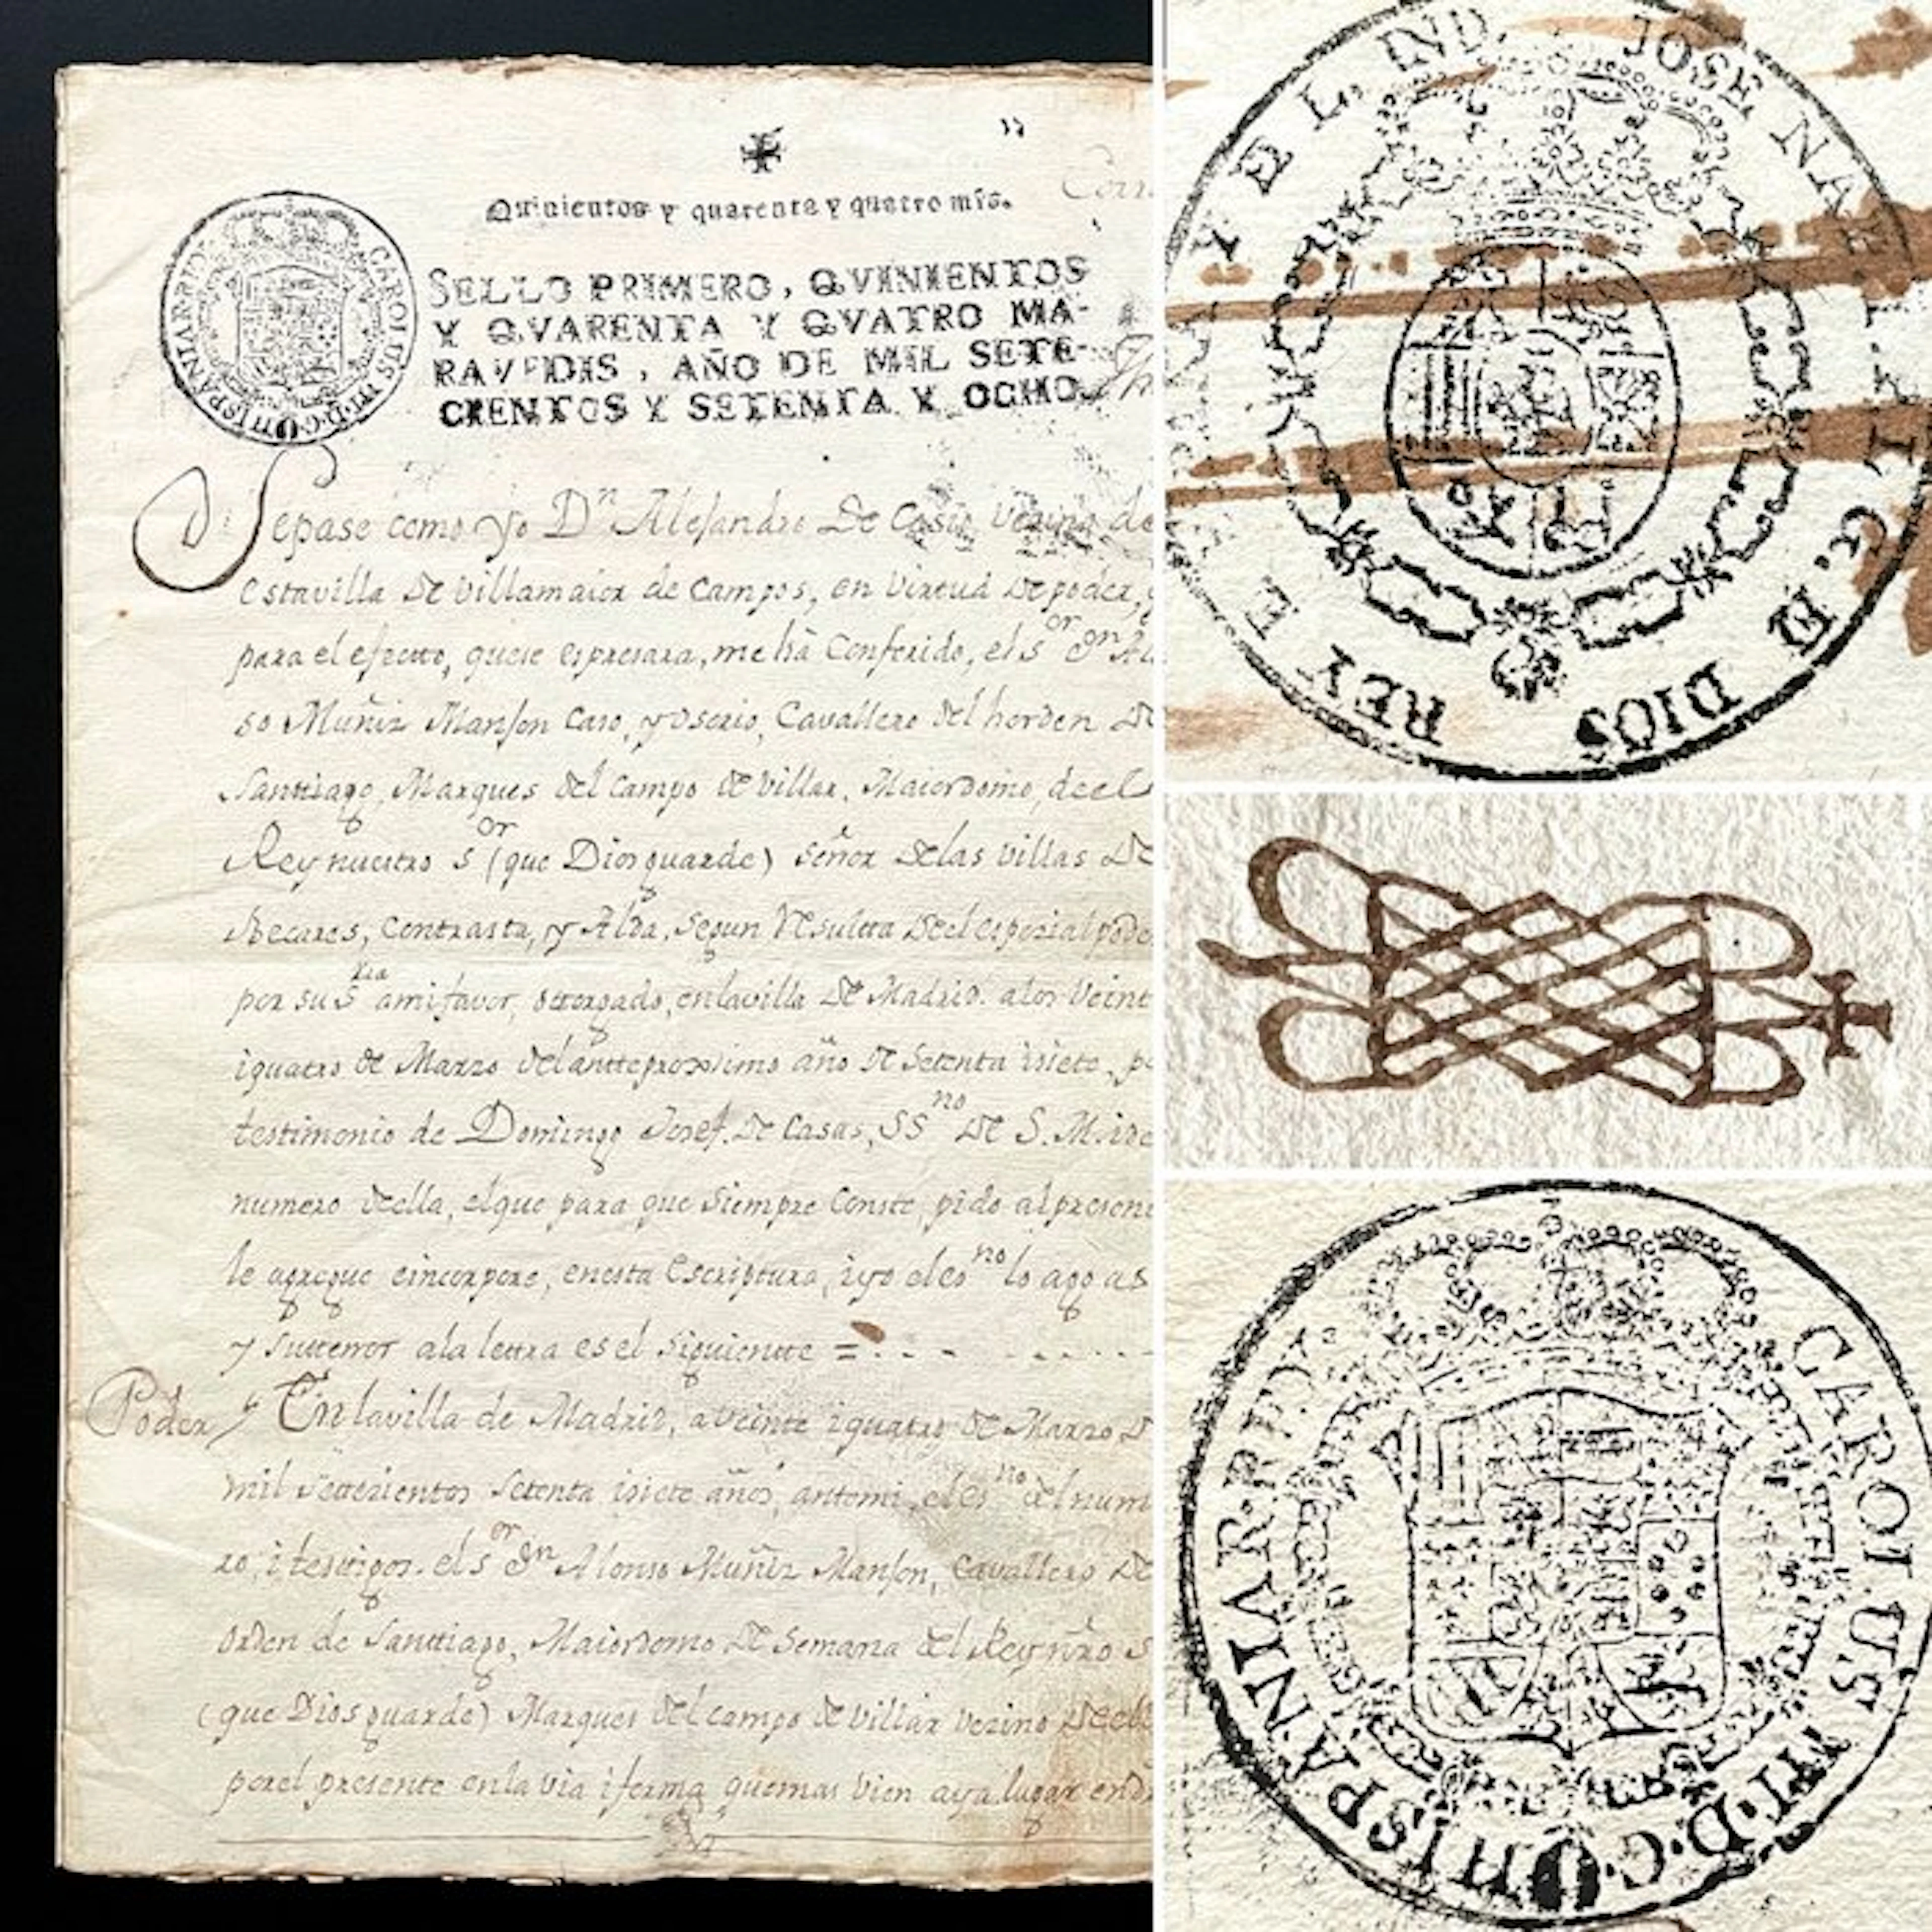 Quinientos y quarenta y quatro mrs.
SELLO PRIMERO, QVINIENTOS
Y QVARENTA Y QVATRO MA-
RAVEDIS, AÑO DE MIL SETE-
CIENTOS Y SETENTA Y OCHO.
CAROLUS III D.G. HISPANIAR REX
Sepase como Yo Dn Alejandro De Cosio Vezino de
estavilla De Villamaior de Campos, en Virtud De poder,
para el efecto, quese espresara, me há Conferido, el Sor Dn
so Muñiz Manson Caso, y Osorio, Cavallero del horden De
Santtiago, Marques del Campo de Villar, Maiordomo, deel
Rey nuestro Sor (que Dios guarde) señor Delas Villas De
Becares, Contrasta, y Alda, segun Resultta Deel espezial pode
por su Sria amifavor, ottorgado, enlavilla De Madrid. alos Veint
iquatro de Marzo delantteproximo año De Setenta isiete, p
testimonio de Domingo Josef. De Casas, SSno De S. M. i de
numero della, elque para que Siempre Conste, pido alpresent
le agregue eincorpore, enesta Escriptura, iyo eles no lo ago as
y suttenor ala lettra es el Siguientte =
Poder
Enlavilla de Madrid, aveinte iquatro De Marzo D
mil settezientos Setenta isiete años, antemi, el esno del num
ro, i testigos. el Sor Dn Alonso Muñiz Manson, Cavallero De
Orden de Santtiago, Maiordomo De Semana del Rey nro S
(que Dios guarde) Marques del campo de Villar Vezino Deella
porel presente enla via i forma quemas bien aya lugar en
JOSE NA
P. L. G. D. DIOS REY E
Y E L. IND.
CAROLUS III·D·G· HISPANIAR·REX·